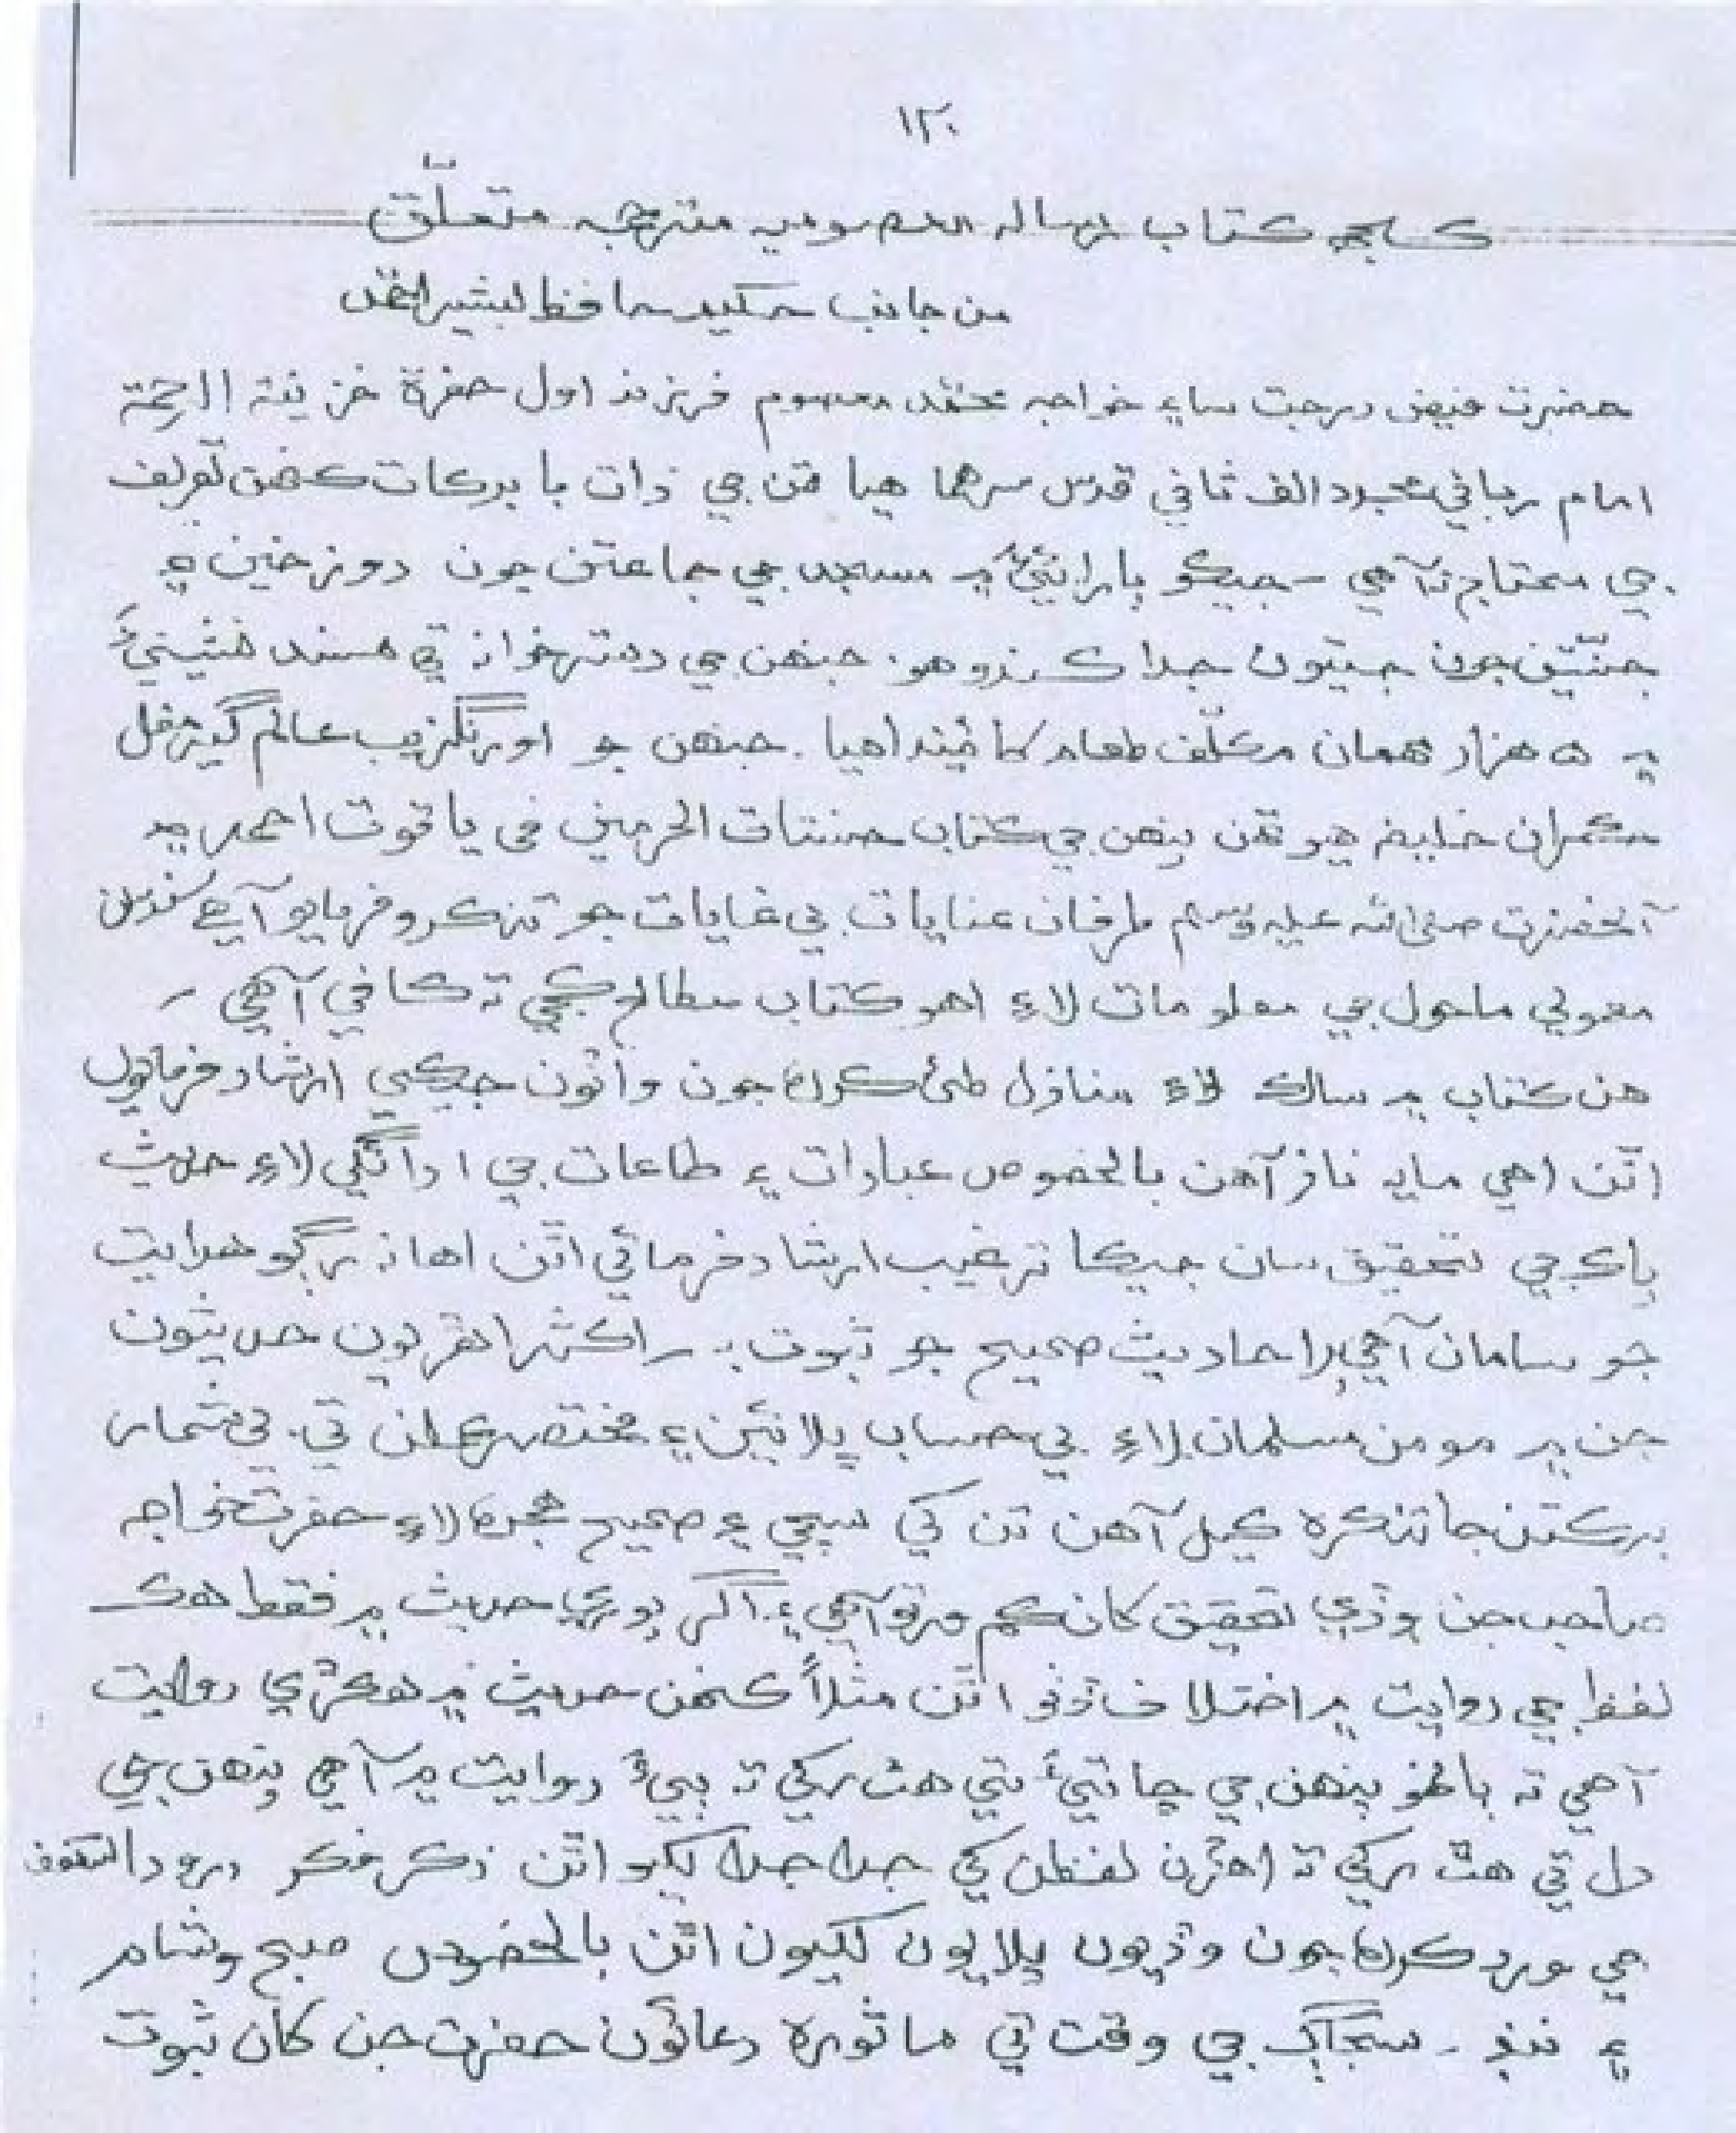 ١٢٠
ڪجهه ڪتاب رساله معصوميه مترجمه متعلّق
من جانب حڪيم حافظ بشير احمد
حضرت فيض درجت سائين خواجه محمد معصوم فرزند اول حضرة خزينة الرحمة
امام رباني مجدد الف ثاني قدس سرهما هيا تن جي ذات با برڪات ڪنهن تعريف
جي محتاج نه آهي - جيڪو ٻاراڻي ۾ مسجد جي جماعتن جون دوزخين ۽
جنّتين جون جتيون جدا ڪندو هو. جنهن جي دسترخوان تي هند سنڌ
۾ ٥ هزار مهمان مڪلّف طعام کائيندا هيا. جنهن جو اورنگزيب عالم گير مغل
حڪمران خليفه هيو تن پنهن جي ڪتاب حسنات الحرمين في ياقوت احمر ۾
آنحضرت صلى الله عليه وسلم طرفان عنايات بي غايات جو تذڪرو فرمايو آهي سندس
معمولي ماحول جي معلومات لاءِ اهو ڪتاب مطالع ڪجي ته ڪافي آهي -
هن ڪتاب ۾ سالڪ لاءِ منازل طئ ڪرڻ جون واٽون جيڪي ارشاد فرمايون
اٿن اهي مايه ناز آهن بالخصوص عبادات ۽ طاعات جي ادائگي لاءِ حديث
پاڪ جي تحقيق سان جيڪا ترغيب ارشاد فرمائي اٿن اها نه رڳو هدايت
جو سامان آهي پر احاديث صحيح جو ثبوت به - اڪثر اهڙيون حديثون
جن ۾ مومن مسلمان لاءِ بي حساب ڀلائين ۽ مختصر عملن تي بي شمار
برڪتن جا تذڪره ڪيل آهن تن کي سڄي ۽ صحيح مجره لاءِ حضرت خواجه
صاحب جن وڏي تحقيق کان ڪم ورتو آهي ۽ اگر پوري حديث ۾ فقط هڪ
لفظ جي روايت ۾ اختلاف ڏٺو اٿن مثلاً ڪنهن حديث ۾ هڪڙي روايت
آهي ته ٻانهو پنهن جي ڇاتيءَ تي هٿ رکي ته ٻيءَ روايت ۾ آهي پنهن جي
دل تي هٿ رکي ته اهڙن لفظن کي جدا جدا لکيو اٿن ذڪر فڪر درود
جي ورد ڪرڻ جون وڏيون ڀلايون لکيون اٿن بالخصوص صبح و شام
۽ ننڊ - سجاڳ جي وقت تي ماثوره دعائون حضرت جن کان ثبوت